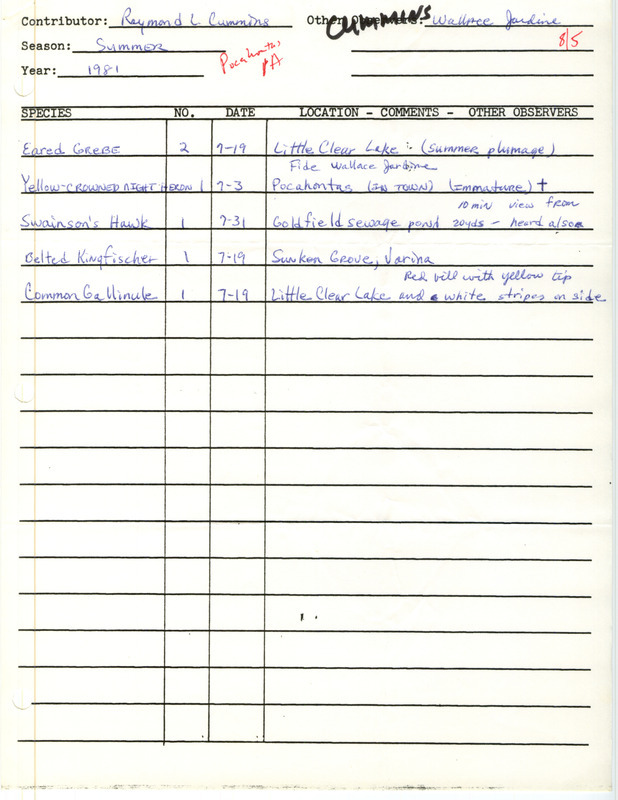 Contributor: Raymond L Cummins Other Observers: Wallace Jardine
CUMMINS
Season: Summer 8/5
Pocahontas
PA
Year: 1981
SPECIES NO. DATE LOCATION - COMMENTS - OTHER OBSERVERS
Eared GREBE 2 7-19 Little Clear Lake :- (Summer plumage)
Fide Wallace Jardine
Yellow-CROWNED NIGHT HERON 1 7-3 Pocahontas (IN TOWN) (Immature) †
10 min view from
Swainson's Hawk 1 7-31 Goldfield sewage pond 20yds - heard also
Belted Kingfischer 1 7-19 Sunken Grove, Varina
Red bill with yellow tip
Common Gallinule 1 7-19 Little Clear Lake and white stripes on side